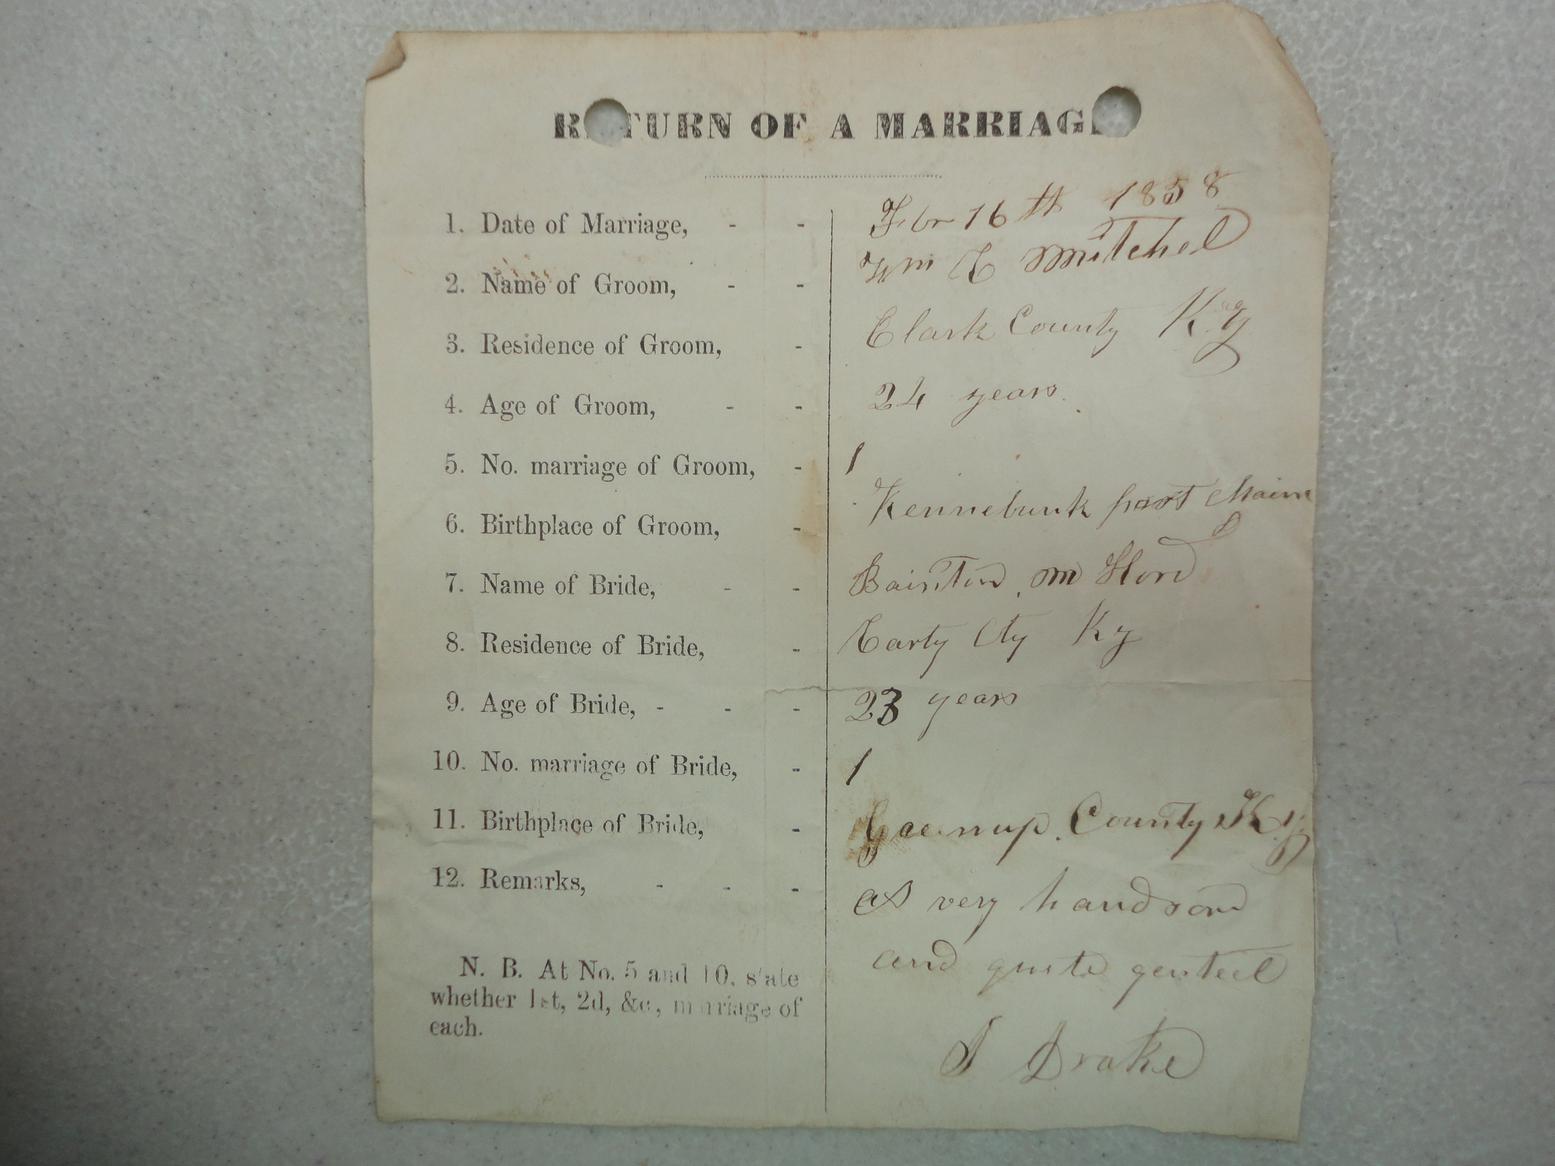 RETURN OF A MARRIAGE
1. Date of Marriage, - - Fbr 16th 1858
2. Name of Groom, - - Wm E Mitchel
3. Residence of Groom, - Clark County Ky
4. Age of Groom, - - 24 years.
5. No. marriage of Groom, - 1
6. Birthplace of Groom, - Kennebunk port Maine
7. Name of Bride, - - M Hord
8. Residence of Bride, - Carty Cty Ky
9. Age of Bride, - - - 23 years
10. No. marriage of Bride, - 1
11. Birthplace of Bride, - Greenup County Ky
12. Remarks, - - - as very handsom
and quite genteel
N. B. At No. 5 and 10, state
whether 1st, 2d, &c., marriage of
each.
J Drake